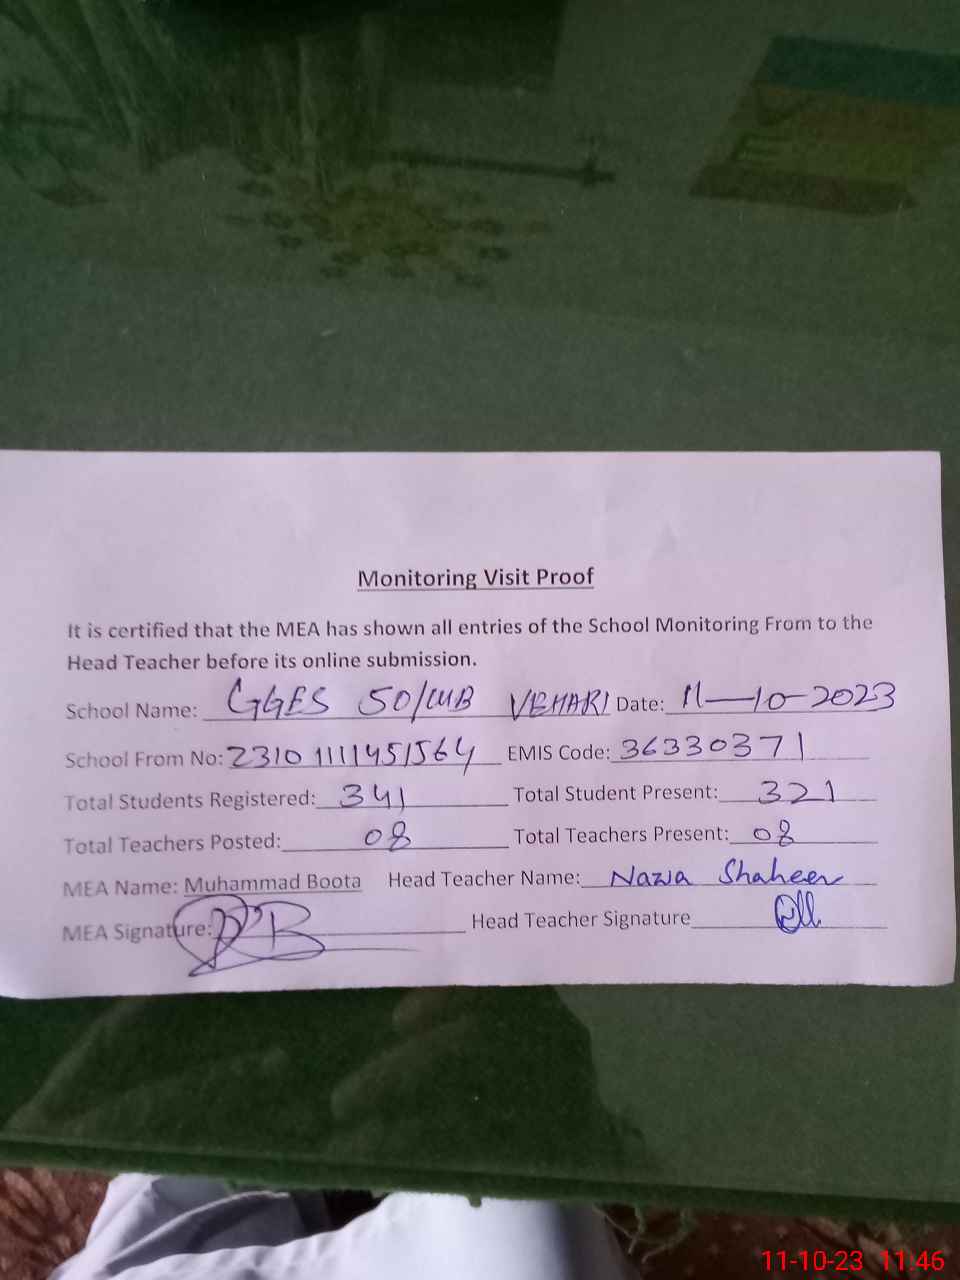 Monitoring Visit Proof
It is certified that the MEA has shown all entries of the School Monitoring From to the
Head Teacher before its online submission.
School Name: GGES 50/WB VEHARI Date: 11-10-2023
School From No: 23101111451564 EMIS Code: 36330371
Total Students Registered: 341 Total Student Present: 321
Total Teachers Posted: 08 Total Teachers Present: 08
MEA Name: Muhammad Boota Head Teacher Name: Nazia Shaheen
MEA Signature: Head Teacher Signature
11-10-23 11:46